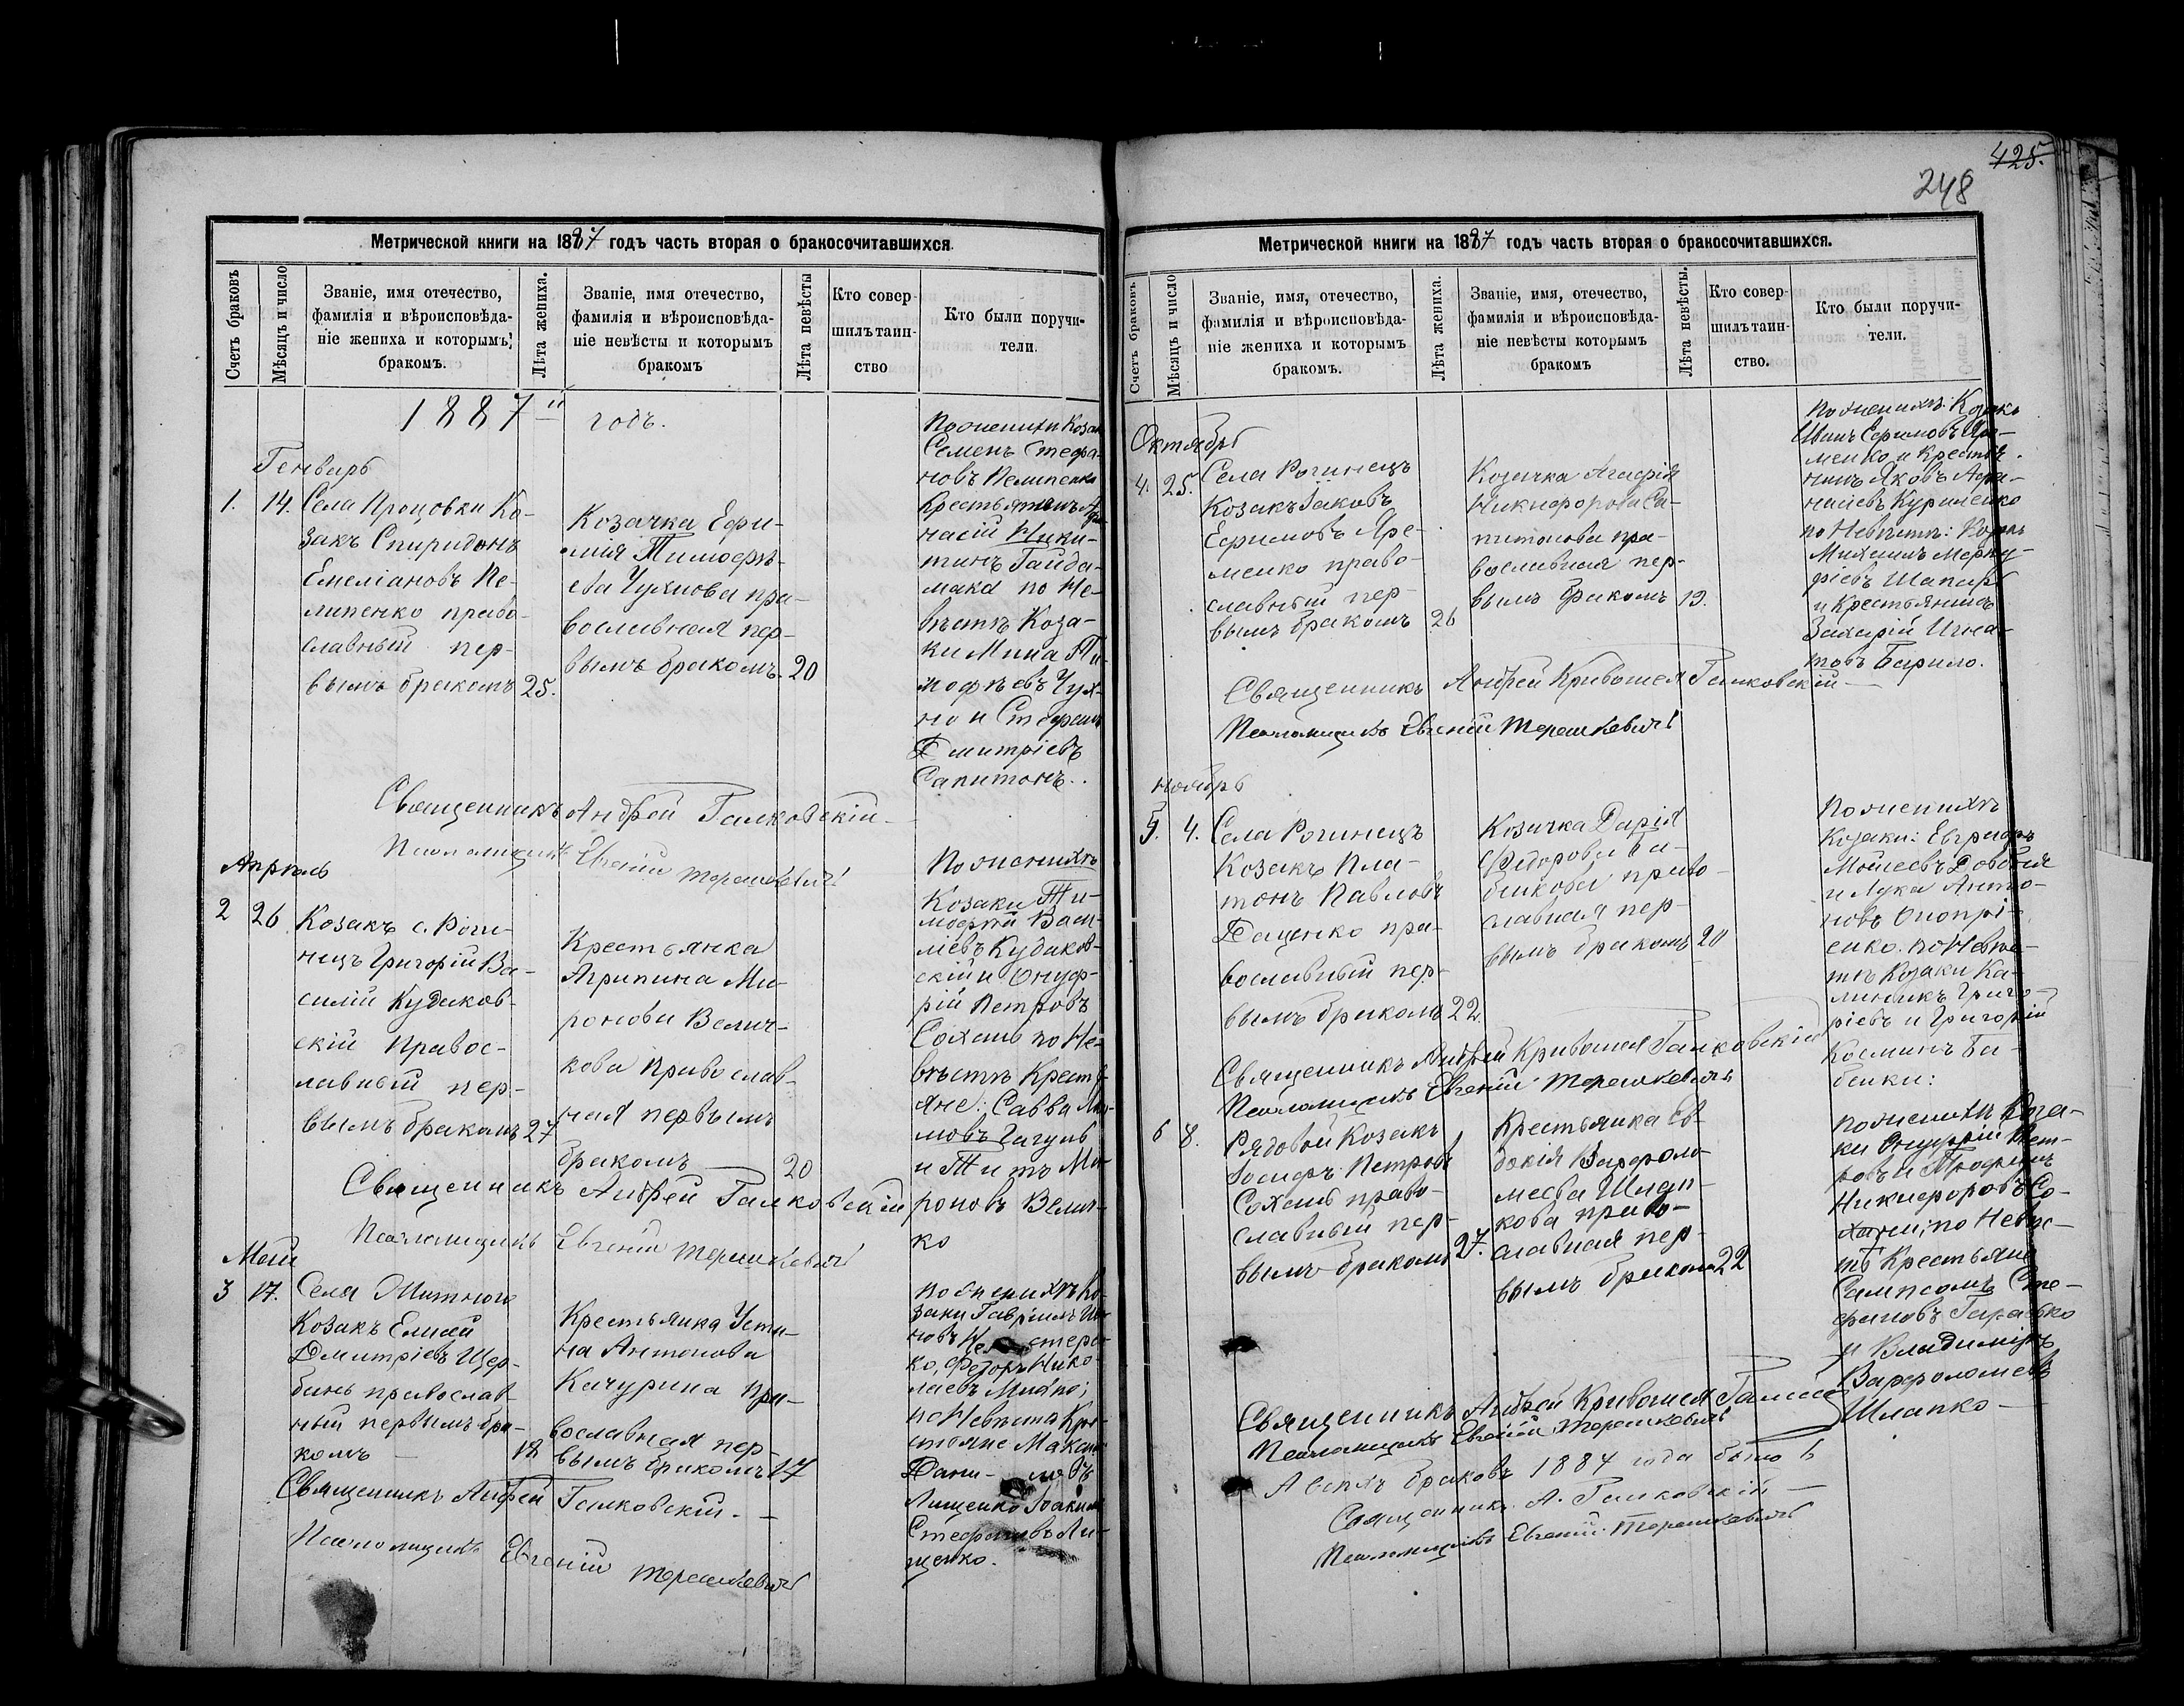 425.
248
Метрической книги на 1887 годъ часть вторая о бракосочитавшихся.
Счетъ браковъ
Мѣсяцъ и число
Званіе, имя отечество,
фамилія и вѣроисповѣда-
ніе жениха и которымъ
бракомъ.
Лѣта жениха.
Званіе, имя отечество,
фамилія и вѣроисповѣда-
ніе невѣсты и которымъ
бракомъ
Лѣта невѣсты
Кто совер-
шилъ таин-
ство
Кто были поручи-
тели.
1887 годъ.
Генварь
1. 14.
Села Процовки Ко-
закъ Спиридонъ
Емеліановъ Пе-
липенко право-
славный пер-
вымъ бракомъ 25.
Козачка Ефи-
мія Тимофѣ-
ева Чухнова пра-
вославная пер-
вымъ бракомъ 20
По женихи Козаки
Семенъ Стефа-
новъ Пелипенко
Крестьянинъ Афа-
насій Ники-
тинъ Гайда-
мака по Не-
вѣстѣ Коза-
ки Мина Ти-
мофѣевъ Чух-
но и Стефанъ
Дмитріевъ
Сапитонъ.
Священникъ Андрей Галковскій
Псаломщикъ Евгеній Терешкевичъ
Апрѣль
2 26
Козакъ с. Роги-
нецъ Григорій Ва-
силій Кудаков-
скій Правос-
лавный пер-
вымъ бракомъ 27
Крестьянка
Агрипина Ми-
ронова Велич-
кова Православ-
ная первымъ
бракомъ 20
По женихѣ
Козаки Ти-
мофѣй Васи-
ліевъ Кудаков-
скій и Онуф-
рій Петровъ
Сохань по Не-
вѣстѣ Кресть-
яне: Савва
Гагулъ
и Титъ Ми-
роновъ Велич-
ко
Священникъ Андрей Галковскій
Псаломщикъ Евгеній Терешкевичъ
Май
3 17.
Села Житного
Козакъ Елисей
Дмитріевъ Щер-
бань православ-
ный первымъ бра-
комъ 18
Крестьянка Усти-
на Антонова
Качурина пра-
вославная пер-
вымъ бракомъ 17
По женихѣ Ко-
заки Гавріилъ Ива-
новъ
ко, Федоръ Нико-
лаевъ
по Невѣстѣ Кре-
стьяне
Дани- ловъ
Лищенко Іоакимъ
Стефановъ Ли-
щенко.
Священникъ Андрей Галковскій.
Псаломщикъ Евгеній Терешкевичъ
Метрической книги на 1887 годъ часть вторая о бракосочитавшихся.
Счетъ браковъ
Мѣсяцъ и число
Званіе, имя, отечество,
фамилія и вѣроисповѣда-
ніе жениха и которымъ
бракомъ.
Лѣта жениха.
Званіе, имя, отечество,
фамилія и вѣроисповѣда-
ніе невѣсты которымъ
бракомъ
Лѣта невѣсты.
Кто совер-
шилъ таин-
ство.
Кто были поручи-
тели.
Октябрь
4. 25.
Села Рогинецъ
Козакъ Іаковъ
Ефимовъ Яре-
менко право-
славный пер-
вымъ бракомъ 26
Козачка Агафія
Никифорова Са-
питонова пра-
вославная пер-
вымъ бракомъ 19.
По женихѣ: Козакъ
Иванъ Ефимовъ Яре-
менко и Крестья-
нинъ Яковъ Афа-
насіевъ Куриленко
по Невѣстѣ: Козакъ
Михаилъ Мерку-
ріевъ Шапарь
и Крестьянинъ
Захарій Игна-
товъ Барило.
Священникъ Андрей Кривошея Галковскій
Псаломщикъ Евгеній Терешкевичъ
Ноябрь
5. 4.
Села Рогинецъ
Козакъ Пла-
тонъ Павловъ
Даценко пра-
вославный пер-
вымъ бракомъ 22
Козачка Дарія
Федорова Ба-
бенкова право-
славная пер-
вымъ бракомъ 20
По женихѣ
Козаки: Евграфъ
Моисеевъ Довбыш
и Лука Анто-
новъ Онопрі-
енко. по Невѣс-
тѣ Козаки Ка-
линикъ Григо-
ріевъ и Григорій
Косминъ Ба-
бенки:
Священникъ Андрей Кривошея Галковскій
Псаломщикъ Евгеній Терешкевичъ
6 8.
Рядовой Козакъ
Іосифъ Петровъ
Сохань право-
славный пер-
вымъ бракомъ 27.
Крестьянка Ев-
докія Варфоло-
меева Шлап-
кова право-
славная пер-
вымъ бракомъ 22
По женихѣ Коза-
ки Онуфрій Пет-
ровъ и Трофимъ
Никифоровъ Со-
хани; по Невѣс-
тѣ Крестьяне
Сампсонъ Сте-
фановъ Гарасько
и Владиміръ
Варфоломеевъ
Шлапко
Священникъ Андрей Кривошея
Псаломщикъ Евгеній Терешкевичъ
А всѣхъ браковъ 1887 года было 6
Священникъ А. Галковскій
Псаломщикъ Евгеній Терешкевичъ